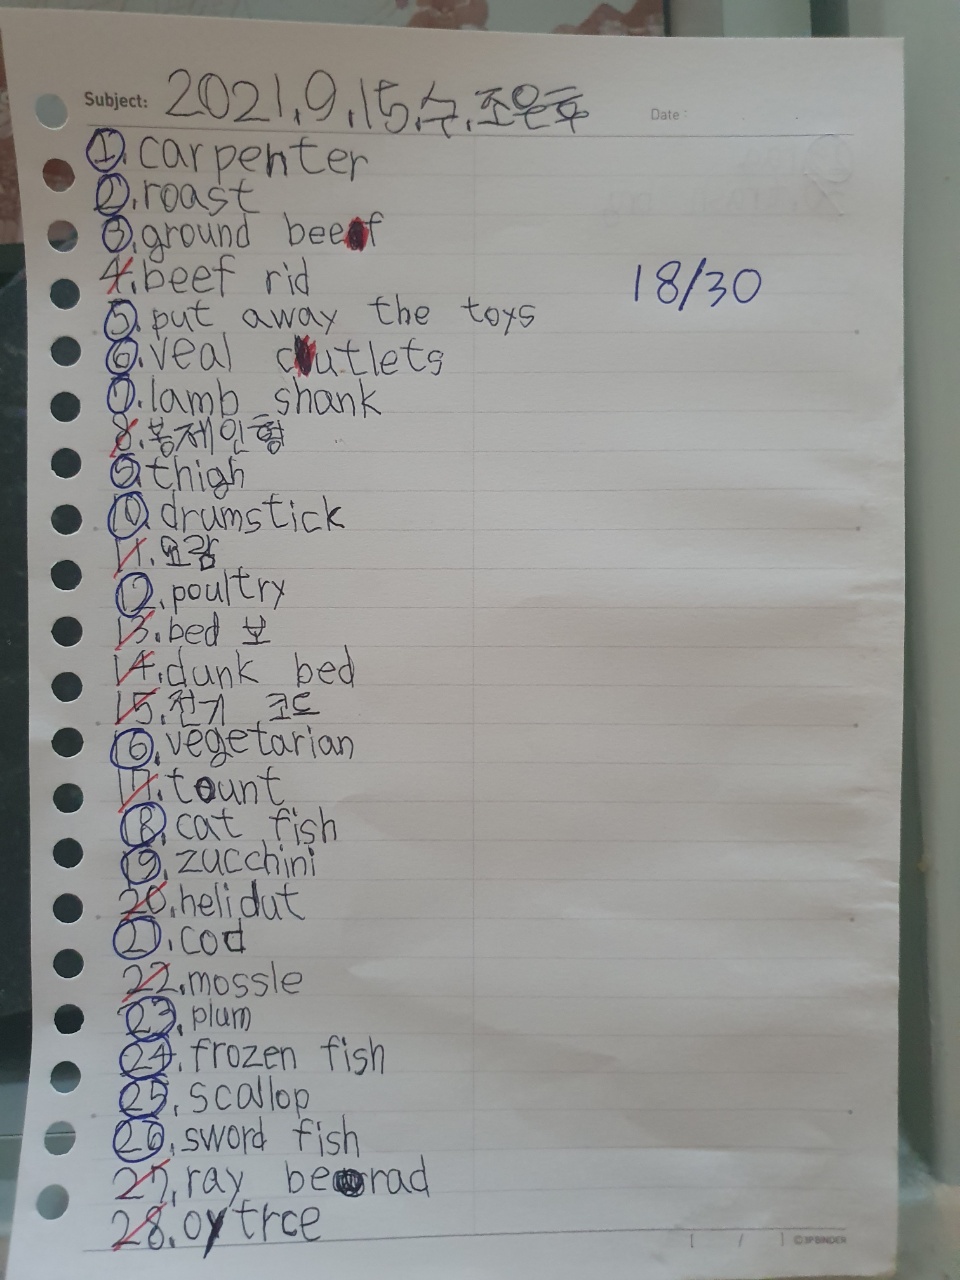 Subject: 2021.9.15.수.조은후
Date:
1. carpenter
2. roast
3. ground beef
4. beef rid
18/30
5. put away the toys
6. veal cutlets
7. lamb shank
8. 봉제인형
9. thigh
10. drumstick
11. 요람
12. poultry
13. bed 보
14. dunk bed
15. 전기 코드
16. vegetarian
17. tount
18. cat fish
19. zucchini
20. helidut
21. cod
22. mossle
23. plum
24. frozen fish
25. scallop
26. sword fish
27. ray berad
28. oytrce
[ / ] ©3P BINDER